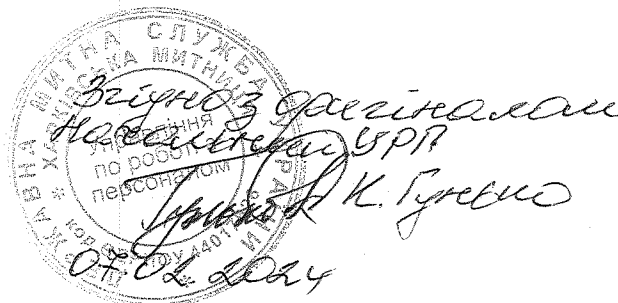 ДЕРЖАВНА МИТНА СЛУЖБА УКРАЇНИ
ХАРКІВСЬКА МИТНИЦЯ
Управління
по роботі з
персоналом
Згідно з оригіналом
Начальник УРП
К. Гунько
07.02.2024